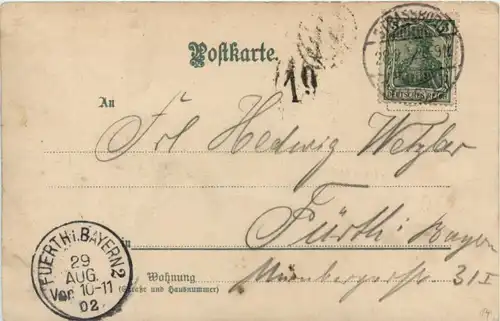 Postkarte.
19
An
Frl Hedwig Wetzlar
in Fürth i. Bayern
Wohnung Nürnbergerstr 31 I
(Straße und Hausnummer)
FUERTH i. BAYERN 2
29
AUG.
Vor. 10-11
02.